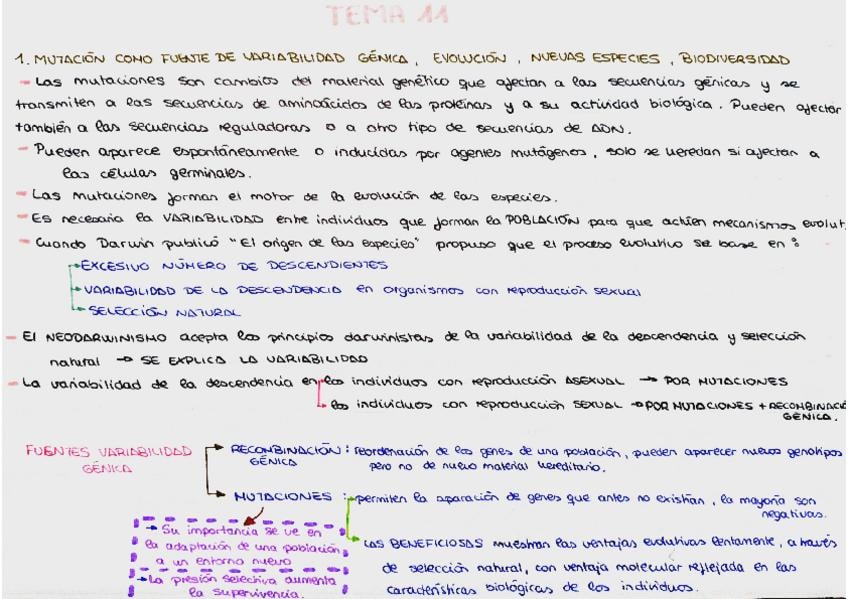 TEMA 11
1. MUTACIÓN COMO FUENTE DE VARIABILIDAD GÉNICA, EVOLUCIÓN, NUEVAS ESPECIES, BIODIVERSIDAD
- Las mutaciones son cambios del material genético que afectan a las secuencias génicas y se
transmiten a las secuencias de aminoácidos de las proteínas y a su actividad biológica. Pueden afectar
también a las secuencias reguladoras o a otro tipo de secuencias de ADN.
- Pueden aparece espontáneamente o inducidas por agentes mutágenos, solo se heredan si afectan a
las células germinales.
- Las mutaciones forman el motor de la evolución de las especies.
- Es necesaria la VARIABILIDAD entre individuos que forman la POBLACIÓN para que actúen mecanismos evolut
- Cuando Darwin publicó "El origen de las especies" propuso que el proceso evolutivo se base en:
EXCESIVO NÚMERO DE DESCENDIENTES
VARIABILIDAD DE LA DESCENDENCIA en organismos con reproducción sexual
SELECCIÓN NATURAL
- El NEODARWINISMO acepta los principios darwinistas de la variabilidad de la descendencia y selección
natural → SE EXPLICA LA VARIABILIDAD
- La variabilidad de la descendencia en los individuos con reproducción ASEXUAL → POR MUTACIONES
los individuos con reproducción SEXUAL → POR MUTACIONES + RECOMBINACIÓ
GÉNICA.
FUENTES VARIABILIDAD
GÉNICA
RECOMBINACIÓN
GÉNICA
: reordenación de los genes de una población, pueden aparecer nuevos genotipos
pero no de nuevo material hereditario.
MUTACIONES : permiten la aparación de genes que antes no existían, la mayoría son
negativas.
LAS BENEFICIOSAS muestran las ventajas evolutivas lentamente, a través
de selección natural, con ventaja molecular reflejada en las
características biológicas de los individuos.
→ Su importancia se ve en
la adaptación de una población
a un entorno nuevo
→ La presión selectiva aumenta
la supervivencia.